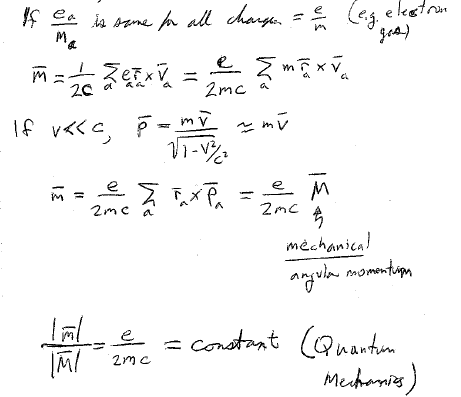 If e_a/m_a is same for all charges = e/m (e.g. electron gas)
m̄ = 1/2c Σ_a e_a r̄_a × v̄_a = e/2mc Σ_a m r̄_a × v̄_a
If v<<c, p̄ = m v̄/√(1-v²/c²) ≈ m v̄
m̄ = e/2mc Σ_a r̄_a × p̄_a = e/2mc M̄
mechanical
angular momentum
|m̄|/|M̄| = e/2mc = constant (Quantum Mechanics)